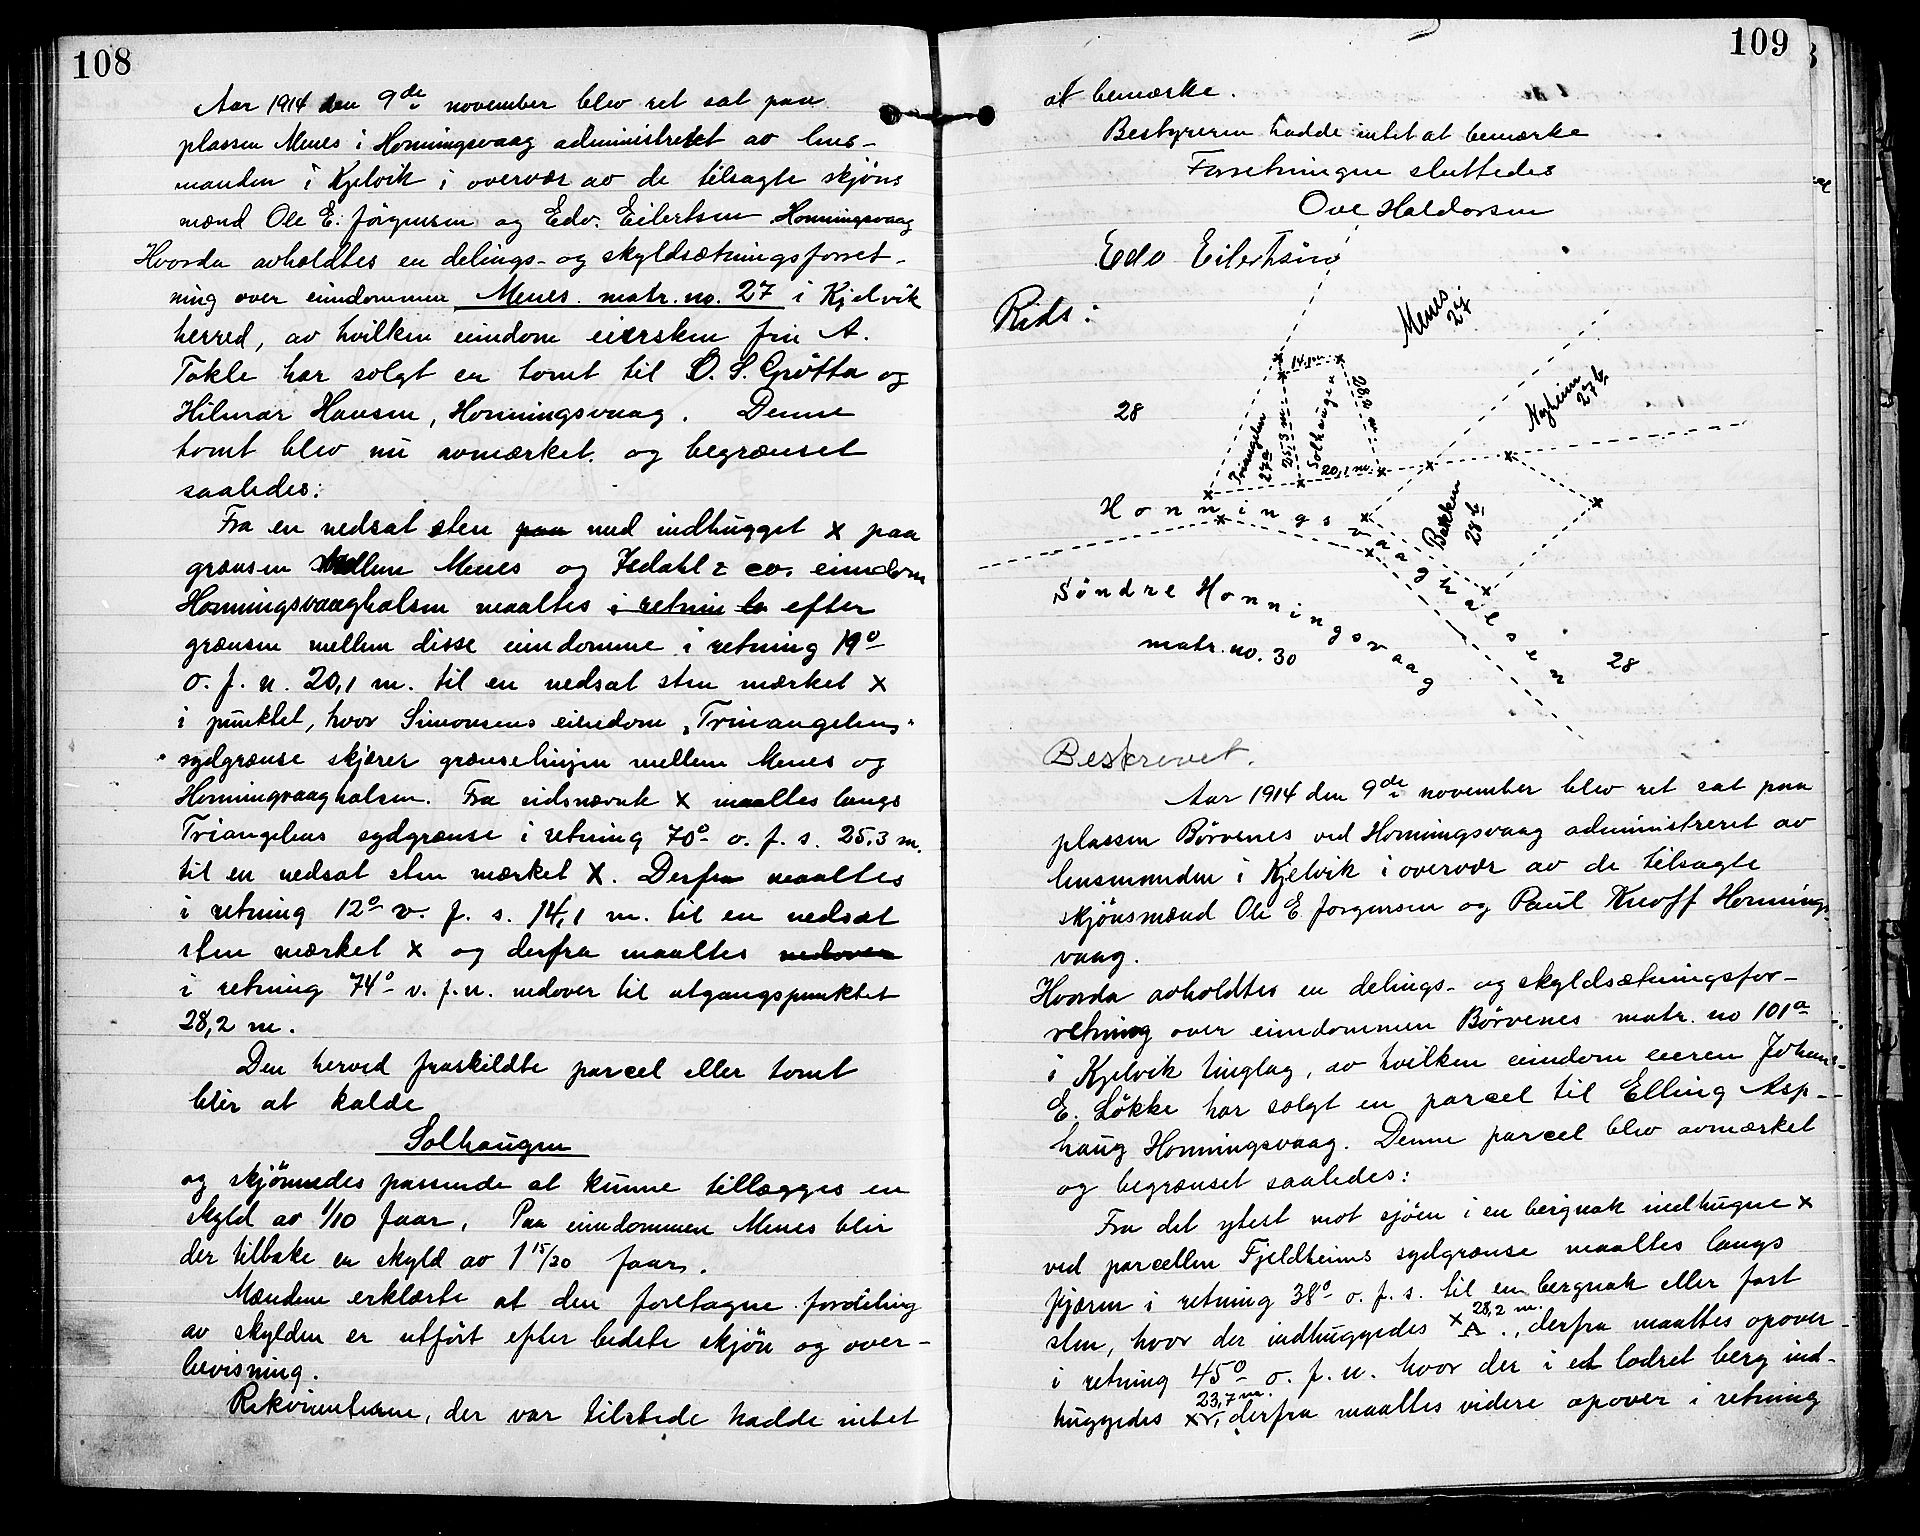 108
Aar 1914 den 9de november blev ret sat paa
plassen Menes i Honningsvaag administreret av lens-
manden i Kjelvik i overvær av de tilsagte skjöns
mænd Ole E. Jörgensen og Edv. Eilertsen Honningsvaag
Hvorda avholdtes en delings- og skyldsætningsforret-
ning over eiendommen Menes matr. no. 27 i Kjelvik
herred, av hvilken eiendom eiersken fru A.
Tokle har solgt en tomt til O. S. Grötta og
Hilmar Hansen, Honningsvaag. Denne
tomt blev nu avmerket og begrænset
saaledes:
Fra en nedsat sten paa med indhugget x paa
grænsen mellem Menes og Isdahl & co. eiendom
Honningsvaaghalsen maaltes i retnin lo efter
grænsen mellem disse eiendomme i retning 19°
o. f. n. 20,1 m. til en nedsat sten mærket x
i punktet, hvor Simonsens eiendom „Trianangelens"
sydgrænse skjærer grænselinjen mellem Menes og
Honningsvaaghalsen. Fra sidsnævnte x maaltes langs
Triangelens sydgrænse i retning 70° o. f. s. 25,3 m.
til en nedsat sten mærket x. Derfra maaltes
i retning 12° v. f. s. 14,1 m. til en nedsat
sten mærket x og derfra maaltes nedover
i retning 74° v. f. n. nedover til utgangspunktet
28,2 m.
Den herved fraskildte parcel eller tomt
blir at kalde
Solhaugen
og skjönnedes passende at kunne tillægges en
skyld av 1/10 faar. Paa eiendommen Menes blir
der tilbake en skyld av 1 15/20 faar.
Mændene erklærte at den foretagne fordeling
av skylden er utfört efter bedste skjön og over-
bevisning.
Rekvirenterne, der var tilstede hadde intet
109
at bemærke.
Bestyreren hadde intet at bemærke
Forretningen sluttedes
Ove Haldorsen
Edv Eilertsen
Rids:
Menes
27
14,1 m.
28
Triangelen
27a
25,3 m
Solhaugen
28,2 m
20,1 m.
Nyheim
27b
Bakken
28b
Honningsvaaghalsen
Söndre Honningsvaag
matr. no. 30
28
Beskrevet.
Aar 1914 den 9de november blev ret sat paa
plassen Börvenes ved Honningsvaag administreret av
lensmanden i Kjelvik i overvær av de tilsagte
skjönsmænd Ole E Jorgensen og Paul Knoff Honnings-
vaag.
Hvorda avholdtes en delings- og skyldsætningsfor-
retning over eiendommen Börvenes matr. no 101a
i Kjelvik tinglag, av hvilken eiendom eieren Johans
E. Lökke har solgt en parcel til Elling Asp-
haug Honningsvaag. Denne parcel blev avmærket
og begrænset saaledes:
Fra det ytest mot sjöen i en bergnak indhugne x
ved parcellen Fjeldheims sydgrænse maaltes langs
fjæren i retning 38° o. f. s. til en bergnak eller fast
sten, hvor der indhuggedes x A 28,2 m., derfra maaltes opover
i retning 45° o. f. n. hvor der i et lodret berg ind-
huggedes x 23,7 m., derfra maaltes videre opover i retning